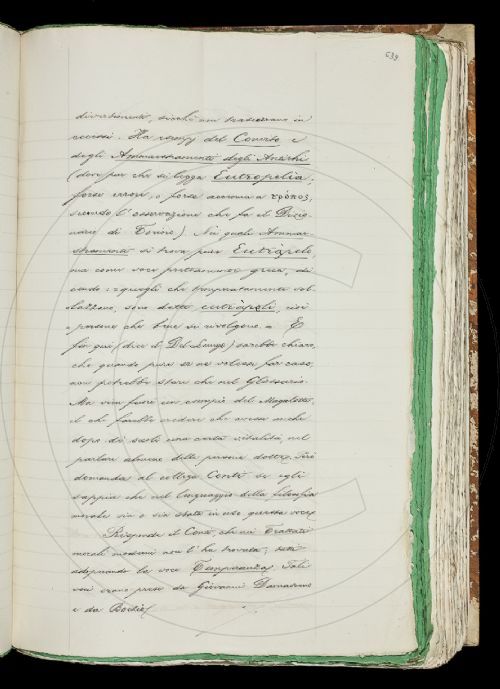 639
divertimento, sicchè non trascorrano in
eccessi. Ha esempj del Convito e
degli Ammaestramenti degli Antichi
(dove par che si legga Eutropelia;
forse errore, o forse accenna a τρόπος,
secondo l'osservazione che fa il Dizio-
nario di Torino). Ne' quali Ammae-
stramenti si trova pure Eutràpelo,
ma come voce prettamente greca, di
cendo: quegli che temperatamente sol-
lazzano, sono detti eutràpoli, cioè
persone che bene si rivolgono. E
fin qui (dice il Del Lungo) sarebbe chiaro,
che quando pure se ne volesse far caso,
non potrebbe stare che nel Glossario.
Ma vien fuori un esempio del Magalotti,
il che farebbe credere che avesse anche
dopo di secoli una certa vitalità nel
parlare almeno delle persone dotte. Però
domanda al collega Conti se egli
sappia che nel linguaggio della filosofia
morale sia o sia stata in uso questa voce.
Risponde il Conti, che nei Trattati
morali moderni non l'ha trovata;
adoprando la voce Temperanza. Tali
voci erano prese da Giovanni Damasceno
e da Boezio.